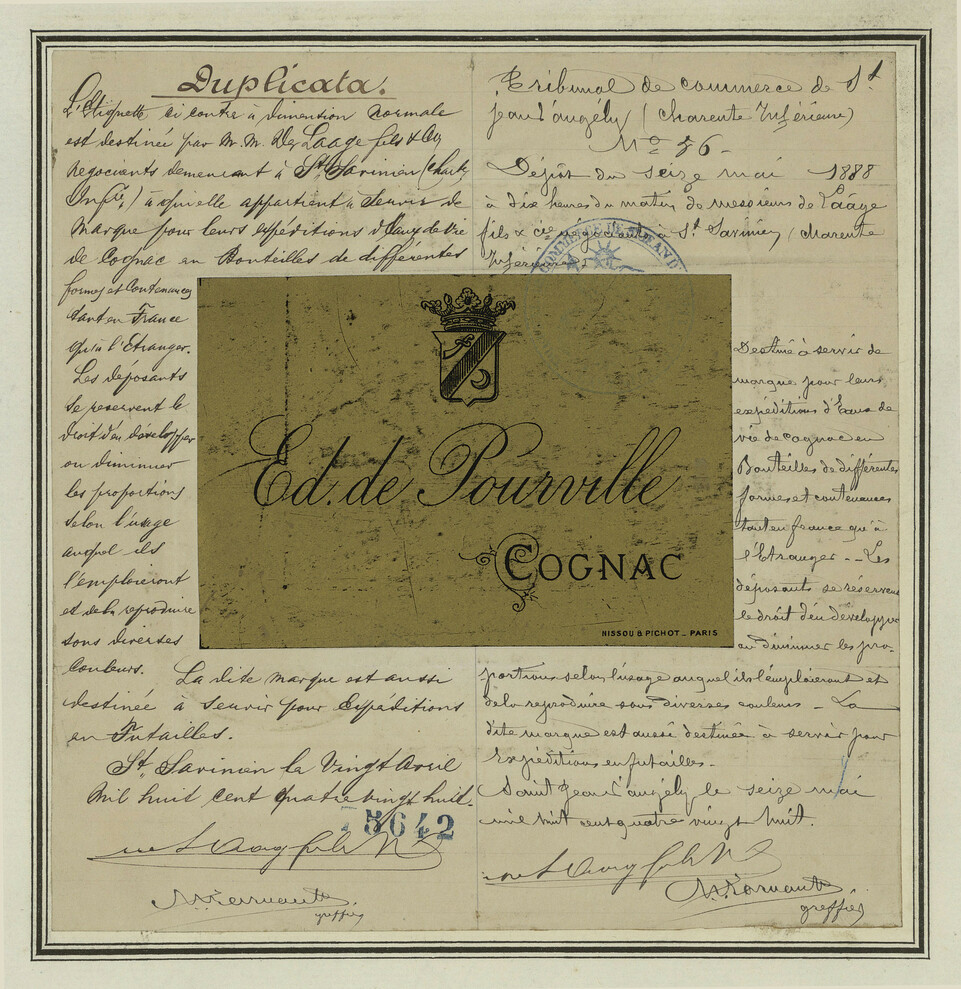 Duplicata.
L'Etiquette ci contre à dimention normale
est destinée par M. M. De Laage fils & Cie
négociants demeurant à St Savinien (Charte
Infre) à qui elle appartient à Servir de
Marque pour leurs expéditions d'Eaux de Vie
de Cognac en Bouteilles de différentes
formes et Contenances
tant en France
qu'à l'Etranger.
Les deposants
se reservent le
droit d'en développer
ou diminuer
les proportions
selon l'usage
auquel ils
l'emploieront
et de la reproduire
sous diverses
Couleurs.
La dite marque est aussi
destinée à Servir pour Expéditions
en Futailles.
St Savinien le Vingt Avril
Mil huit cent quatre vingt huit.
5642
greffier
Tribunal de commerce de St
Jean d'angély (Charente Inférieure)
No 56 -
Dépôt du seize mai 1888
à dix heures du matin de messieurs de Laage
fils & cie négociants à St Savinien (Charente
Inférieure)
Destinée à servir de
marque pour leurs
expéditions d'Eaux de
vie de cognac en
Bouteilles de différentes
formes et contenances
tant en france qu'à
l'Etranger - Les
déposants se réservent
le droit d'en développer
ou diminuer les pro-
portions selon l'usage auquel ils l'emploieront et
de la reproduire sous diverses couleurs - La
dite marque est aussi destinée à servir pour
Expéditions en futailles -
Saint Jean d'angély le seize mai
mil huit cent quatre vingt huit.
greffier
Ed. de Pourville
COGNAC
NISSOU & PICHOT _ PARIS